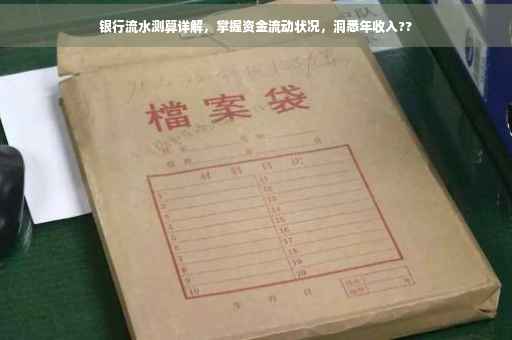 银行流水测算详解，掌握资金流动状况，洞悉年收入??
檔案袋
材料目次
1 11
2 12
3 13
4 14
5 15
6 16
7 17
8 18
9 19
10 20
年 月 日